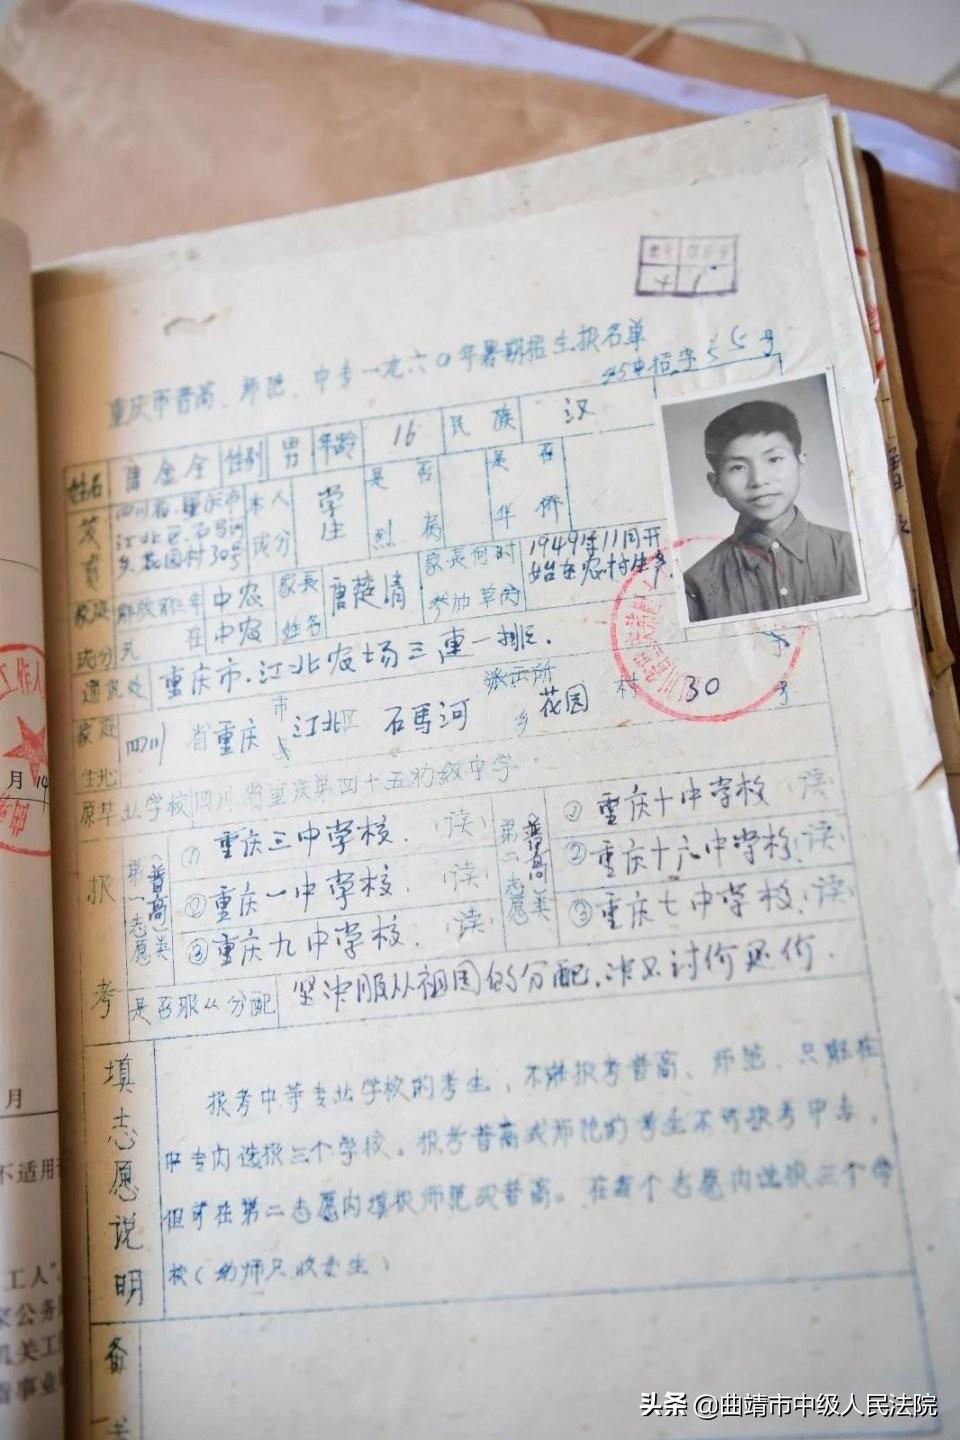 重庆市普高、师范、中专一九六〇年暑期招生报名单
45中招字 号
姓名 唐金全 性别 男 年龄 16 民族 汉
四川省、重庆市江北区、石马河乡、花园村30号
本人成分 学生
是否烈属
是否华侨
家庭成分 解放前三年 中农
在 中农
家長姓名 唐楚清
家長何时参加革命 1949年11月开始在农村生产.
通讯处 重庆市.江北农场三連一排.
家庭 四川省重庆市江北区 石馬河 派出所 乡 花园 村 30号
原毕业学校 四川省重庆第四十五初級中学
报考
第一志愿(普高)类
① 重庆三中学校.(读)
② 重庆一中学校.(读)
③ 重庆九中学校.(读)
第二志愿(普高)类
① 重庆十中学校(读)
② 重庆十六中学校.(读)
③ 重庆七中学校.(读)
是否服从分配 坚决服从祖国的分配,决不讨价还价.
填志愿说明
报考中等专业学校的考生,不能报考普高、师范、只能在
中专内选报三个学校。报考普高或师范的考生不可报考中专,
但可在第二志愿内填报师范或普高。在每个志愿内选报三个学
校(幼师只收女生)
备
工作人
月
月
不适用
工人"
家公务
机关工
事业
头条 @曲靖市中级人民法院